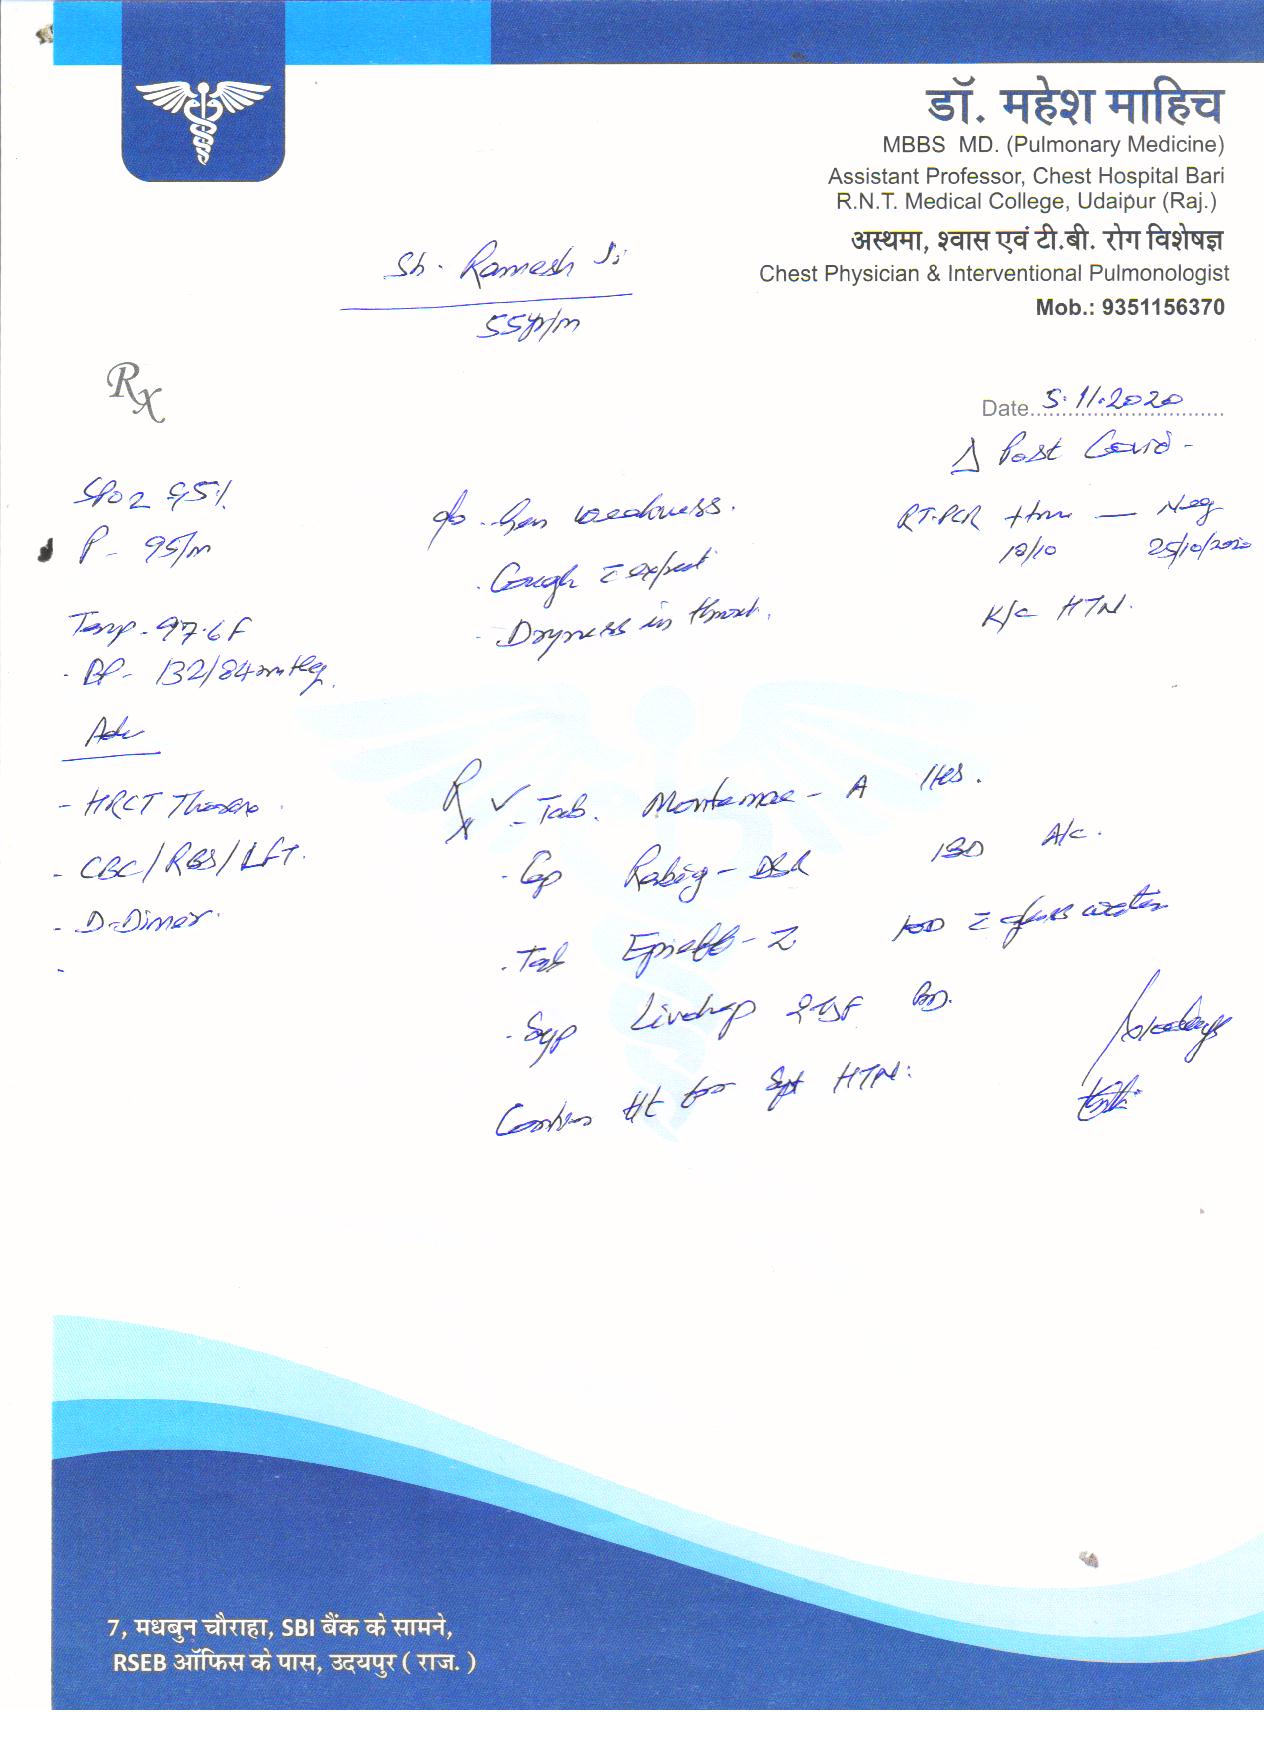 डॉ. महेश माहिच
MBBS MD. (Pulmonary Medicine)
Assistant Professor, Chest Hospital Bari
R.N.T. Medical College, Udaipur (Raj.)
अस्थमा, श्वास एवं टी.बी. रोग विशेषज्ञ
Chest Physician & Interventional Pulmonologist
Mob.: 9351156370
Sh. Ramesh Ji
55yr/m
Rx
Date 5.11.2020
Δ Post Covid -
RT-PCR +tve — Neg
25/10/2020
K/c HTN.
SPO2 95%
P - 95/m
Temp - 97.6 F
- BP - 132/84 mmHg
Adv
- HRCT Thorax
- CBC/RBS/LFT.
- D-Dimer
c/o - Gen weakness.
- Cough c expect
- Dryness in throat.
Rx ✓ - Tab. - A
- Cap - DSR A/c.
- Tab - Z c water
- Syp BD.
for HTN.
7, मधबुन चौराहा, SBI बैंक के सामने,
RSEB ऑफिस के पास, उदयपुर ( राज. )